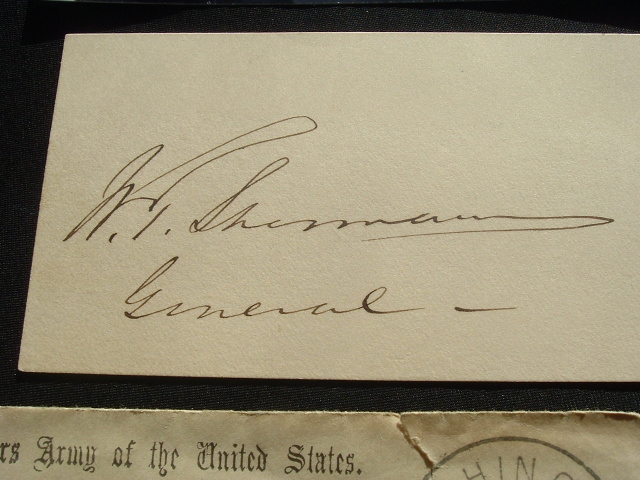 W. T. Sherman
General –
rs Army of the United States.
HIN